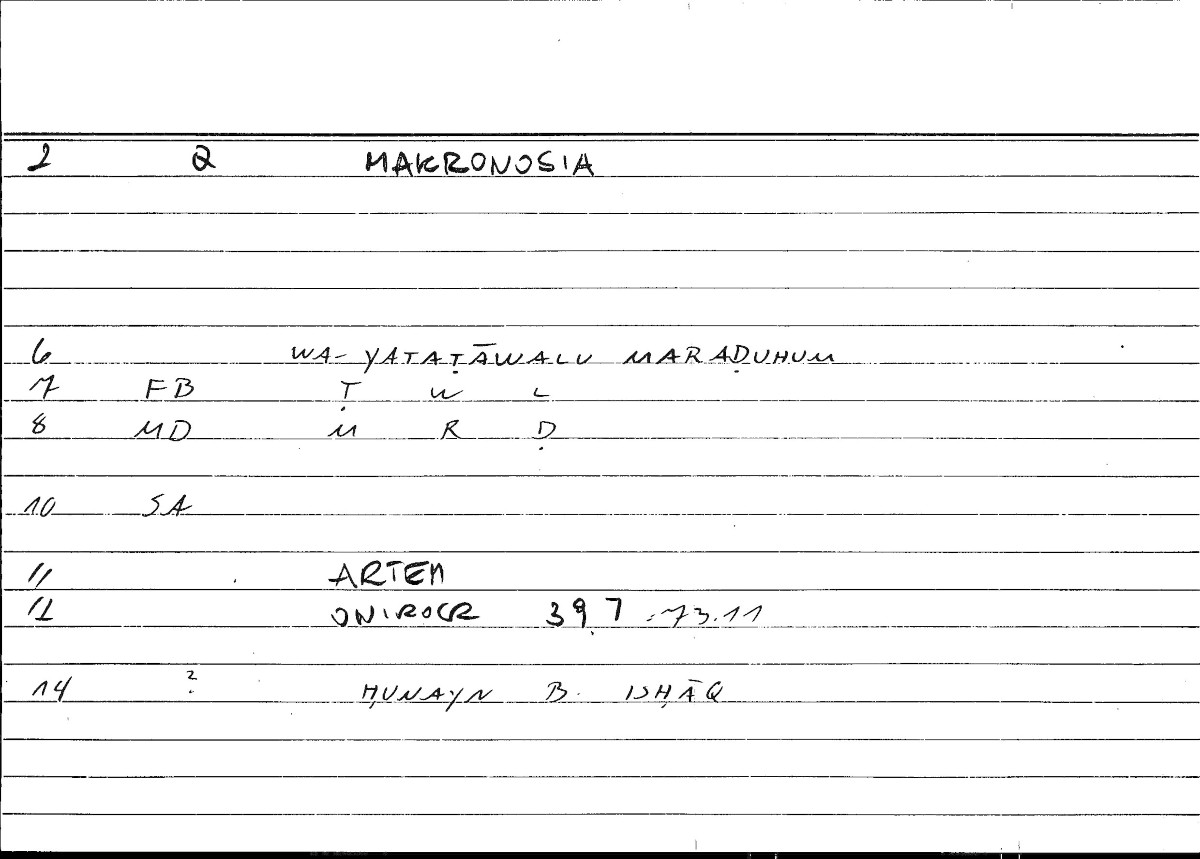 2 Q MAKRONOSIA
6 WA- YATAṬĀWALU MARAḌUHUM
7 FB Ṭ W L
8 MD M R Ḍ
10 SA
11 ARTEM
12 ONIROCR 39,7 .73.11
14 ? ḤUNAYN B. ISḤĀQ